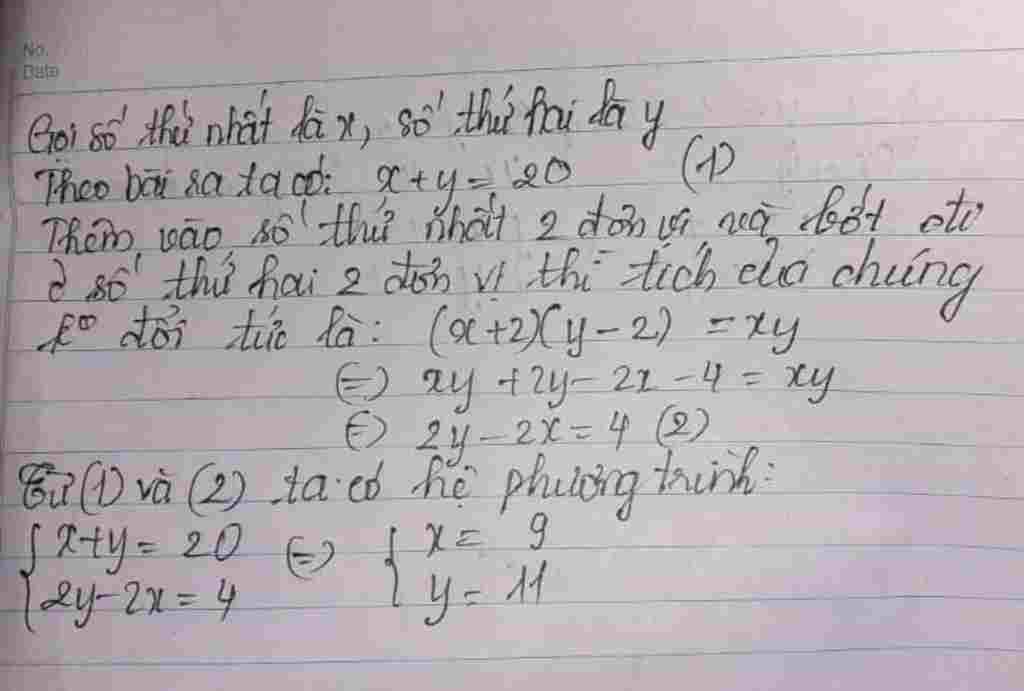 No.
Date
Gọi số thứ nhất là x, số thứ hai là y
Theo bài ra ta có: x+y = 20 (1)
Thêm vào số thứ nhất 2 đơn vị và bớt đi
ở số thứ hai 2 đơn vị thì tích của chúng
k° đổi tức là: (x+2)(y-2) = xy
(=) xy + 2y - 2x - 4 = xy
(=) 2y - 2x = 4 (2)
Từ (1) và (2) ta có hệ phương trình:
{x+y = 20 (=) {x = 9
{2y-2x = 4 {y = 11